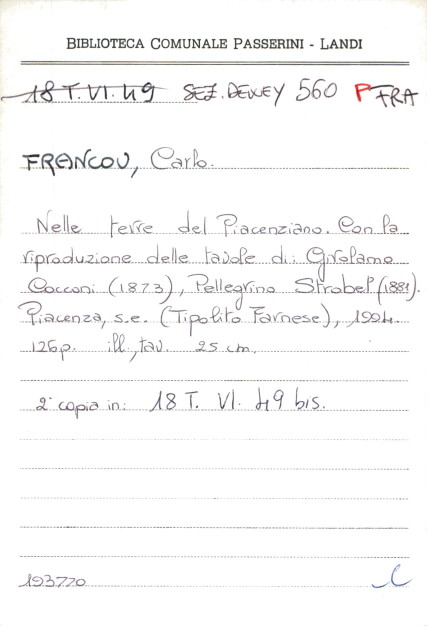 BIBLIOTECA COMUNALE PASSERINI - LANDI
18 T. VI. 49 SEZ. DEWEY 560 P FRA
FRANCOU, Carlo.
Nelle terre del Piacenziano. Con la
riproduzione delle tavole di: Girolamo
Cocconi (1873), Pellegrino Strobel (1881).
Piacenza, s.e. (Tipolito Farnese), 1994.
126p. ill., tav. 25 cm.
2ª copia in: 18 T. VI. 49 bis.
193770